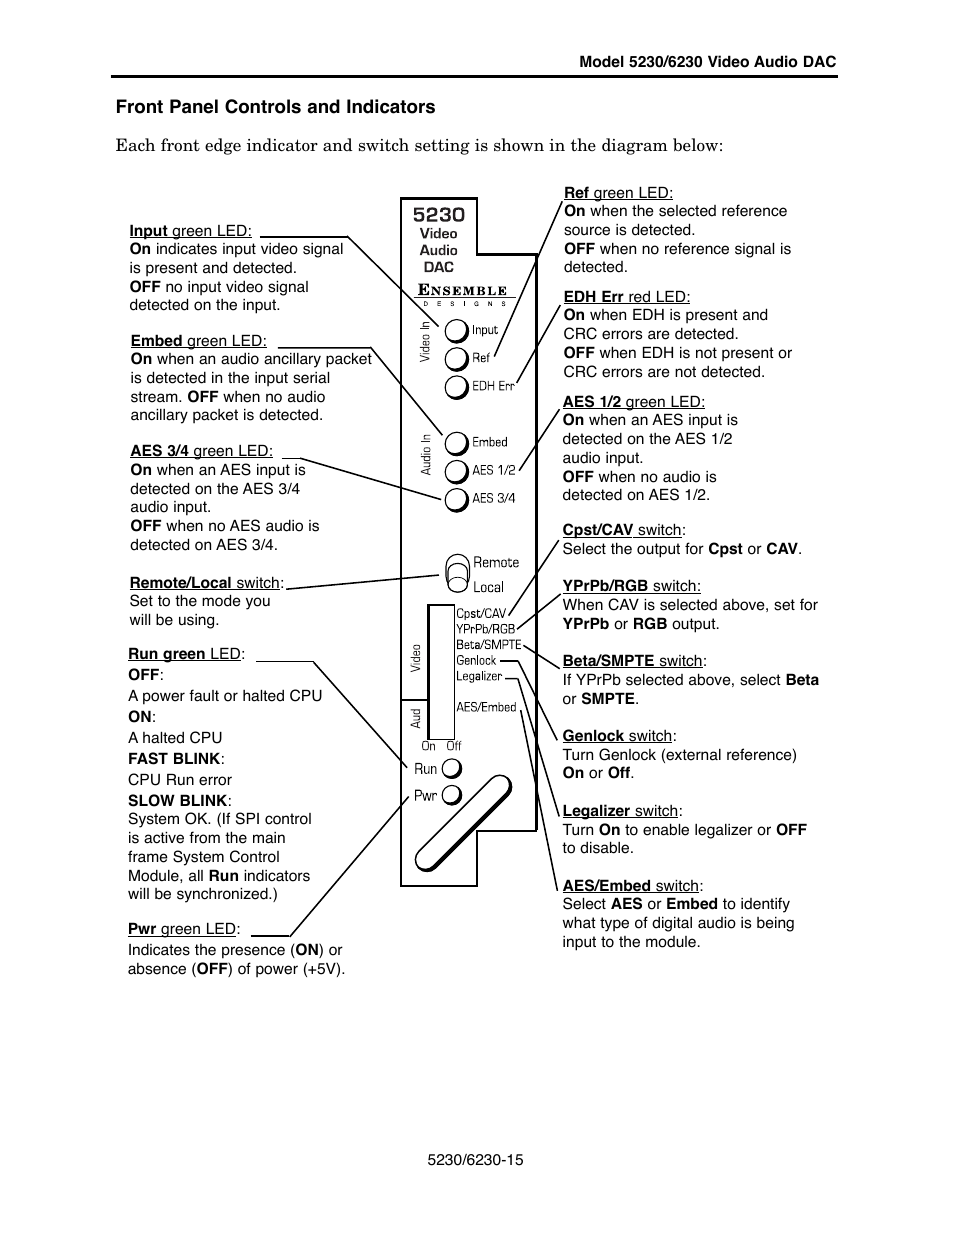 Model 5230/6230 Video Audio DAC
Front Panel Controls and Indicators
Each front edge indicator and switch setting is shown in the diagram below:
Input green LED:
On indicates input video signal
is present and detected.
OFF no input video signal
detected on the input.
Embed green LED:
On when an audio ancillary packet
is detected in the input serial
stream. OFF when no audio
ancillary packet is detected.
AES 3/4 green LED:
On when an AES input is
detected on the AES 3/4
audio input.
OFF when no AES audio is
detected on AES 3/4.
Remote/Local switch:
Set to the mode you
will be using.
Run green LED:
OFF:
A power fault or halted CPU
ON:
A halted CPU
FAST BLINK:
CPU Run error
SLOW BLINK:
System OK. (If SPI control
is active from the main
frame System Control
Module, all Run indicators
will be synchronized.)
Pwr green LED:
Indicates the presence (ON) or
absence (OFF) of power (+5V).
5230
Video
Audio
DAC
ENSEMBLE
DESIGNS
Video In
Input
Ref
EDH Err
Audio In
Embed
AES 1/2
AES 3/4
Remote
Local
Video
Cpst/CAV
YPrPb/RGB
Beta/SMPTE
Genlock
Legalizer
Aud
AES/Embed
On Off
Run
Pwr
Ref green LED:
On when the selected reference
source is detected.
OFF when no reference signal is
detected.
EDH Err red LED:
On when EDH is present and
CRC errors are detected.
OFF when EDH is not present or
CRC errors are not detected.
AES 1/2 green LED:
On when an AES input is
detected on the AES 1/2
audio input.
OFF when no audio is
detected on AES 1/2.
Cpst/CAV switch:
Select the output for Cpst or CAV.
YPrPb/RGB switch:
When CAV is selected above, set for
YPrPb or RGB output.
Beta/SMPTE switch:
If YPrPb selected above, select Beta
or SMPTE.
Genlock switch:
Turn Genlock (external reference)
On or Off.
Legalizer switch:
Turn On to enable legalizer or OFF
to disable.
AES/Embed switch:
Select AES or Embed to identify
what type of digital audio is being
input to the module.
5230/6230-15